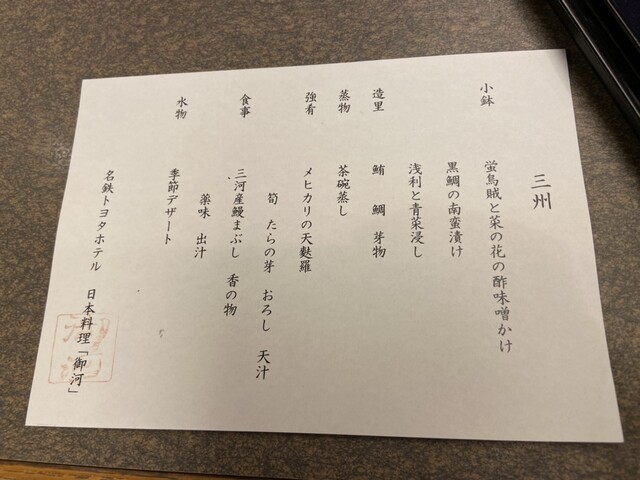 三州
小鉢 蛍烏賊と菜の花の酢味噌かけ
黒鯛の南蛮漬け
浅利と青菜浸し
造里 鮪 鯛 芽物
蒸物 茶碗蒸し
強肴 メヒカリの天麩羅
筍 たらの芽 おろし 天汁
食事 三河産鰻まぶし 香の物
薬味 出汁
水物 季節デザート
名鉄トヨタホテル 日本料理「御河」